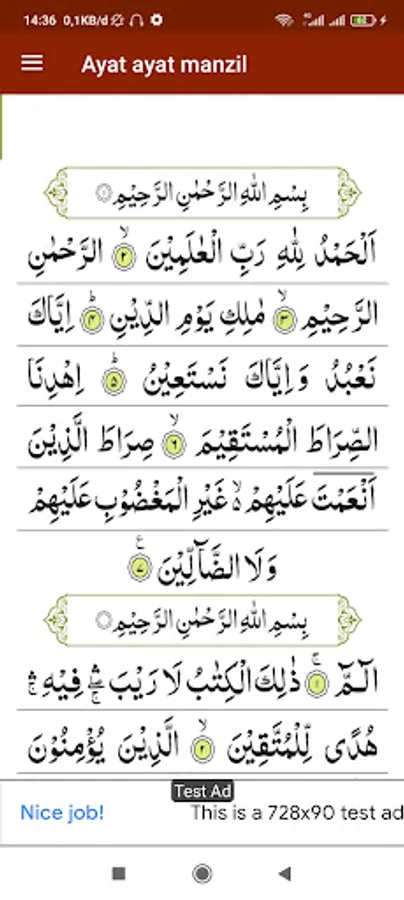 14:36 0,1KB/d
62
Ayat ayat manzil
بِسْمِ اللهِ الرَّحْمٰنِ الرَّحِيْمِ ۝
اَلْحَمْدُ لِلّٰهِ رَبِّ الْعٰلَمِيْنَ ۝٢ الرَّحْمٰنِ
الرَّحِيْمِ ۙ۝٣ مٰلِكِ يَوْمِ الدِّيْنِ ۗ۝٤ اِيَّاكَ
نَعْبُدُ وَاِيَّاكَ نَسْتَعِيْنُ ۗ۝٥ اِهْدِنَا
الصِّرَاطَ الْمُسْتَقِيْمَ ۙ۝٦ صِرَاطَ الَّذِيْنَ
اَنْعَمْتَ عَلَيْهِمْ ەۙ غَيْرِ الْمَغْضُوْبِ عَلَيْهِمْ
وَلَا الضَّاۤلِّيْنَ ࣖ۝٧
بِسْمِ اللهِ الرَّحْمٰنِ الرَّحِيْمِ ۝
الۤمّۤ ۚ۝١ ذٰلِكَ الْكِتٰبُ لَا رَيْبَ ۛ فِيْهِ ۛ
هُدًى لِّلْمُتَّقِيْنَ ۙ۝٢ الَّذِيْنَ يُؤْمِنُوْنَ
Test Ad
Nice job! This is a 728x90 test ad